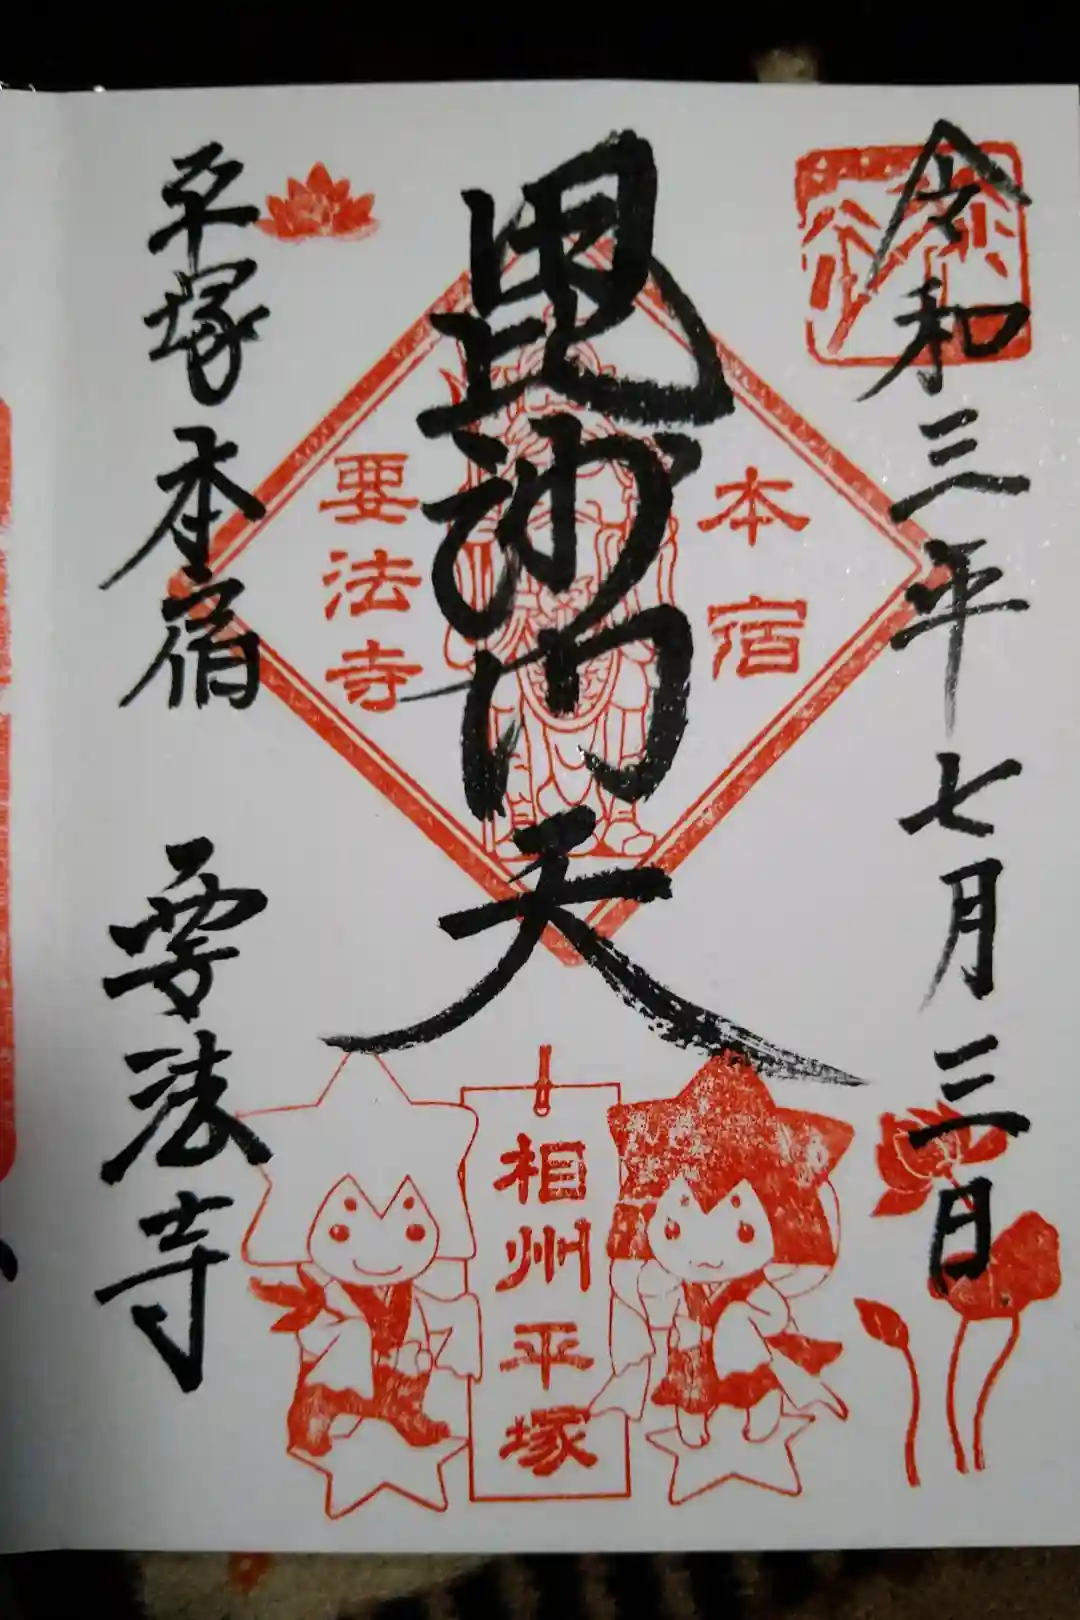 令和三年七月三日
本宿
毘沙門天
要法寺
相州平塚
平塚本宿 要法寺